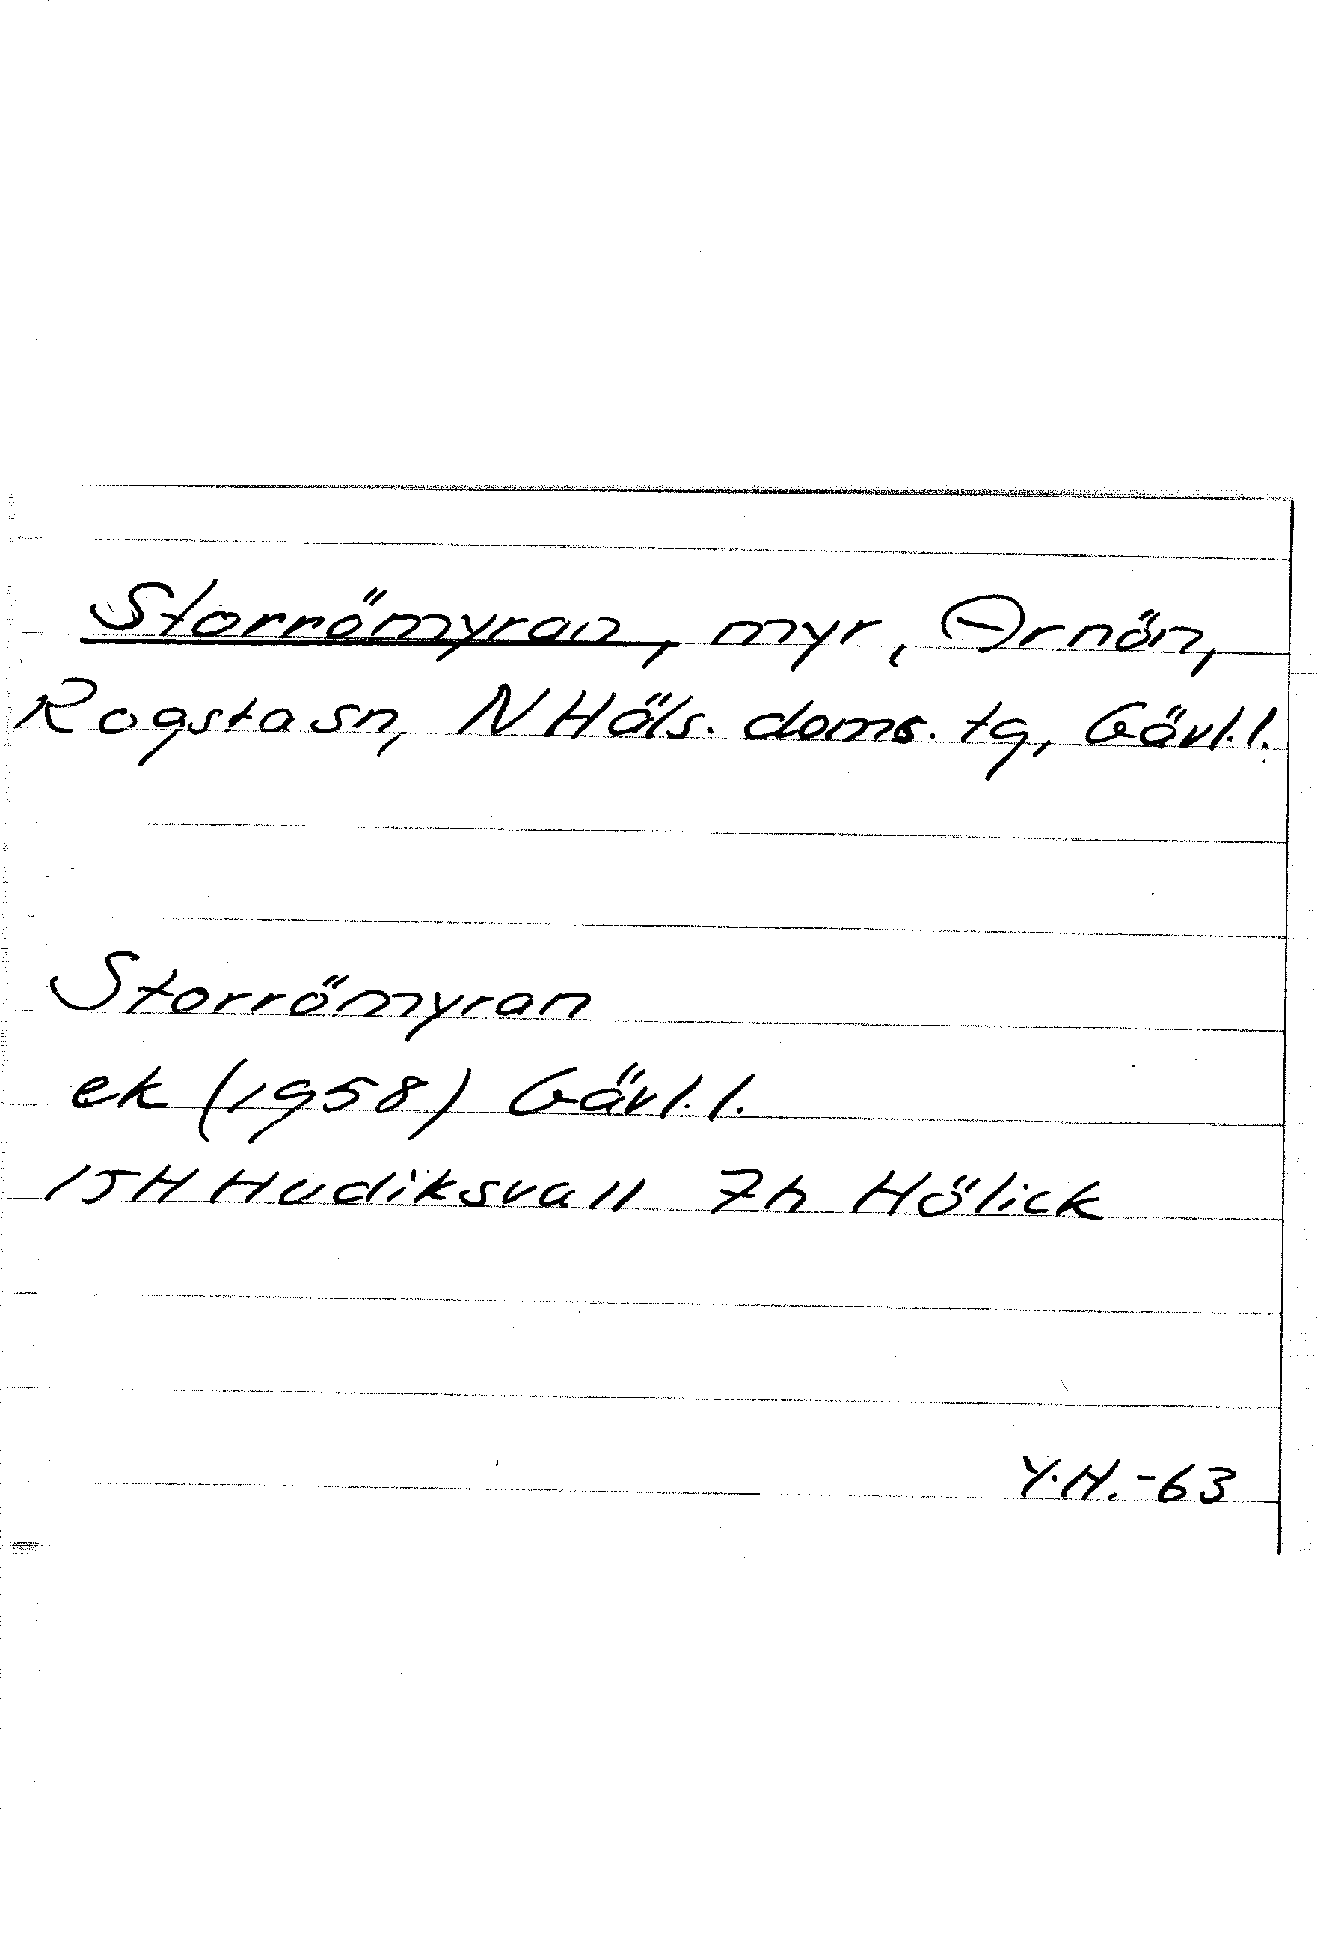 Storrömyran, myr, Arnön,
Rogsta sn, N Häls. doms. tg, Gävl. l.
Storrömyran
ek (1958) Gävl. l.
15H Hudiksvall 7h Hölick
Y.H. -63